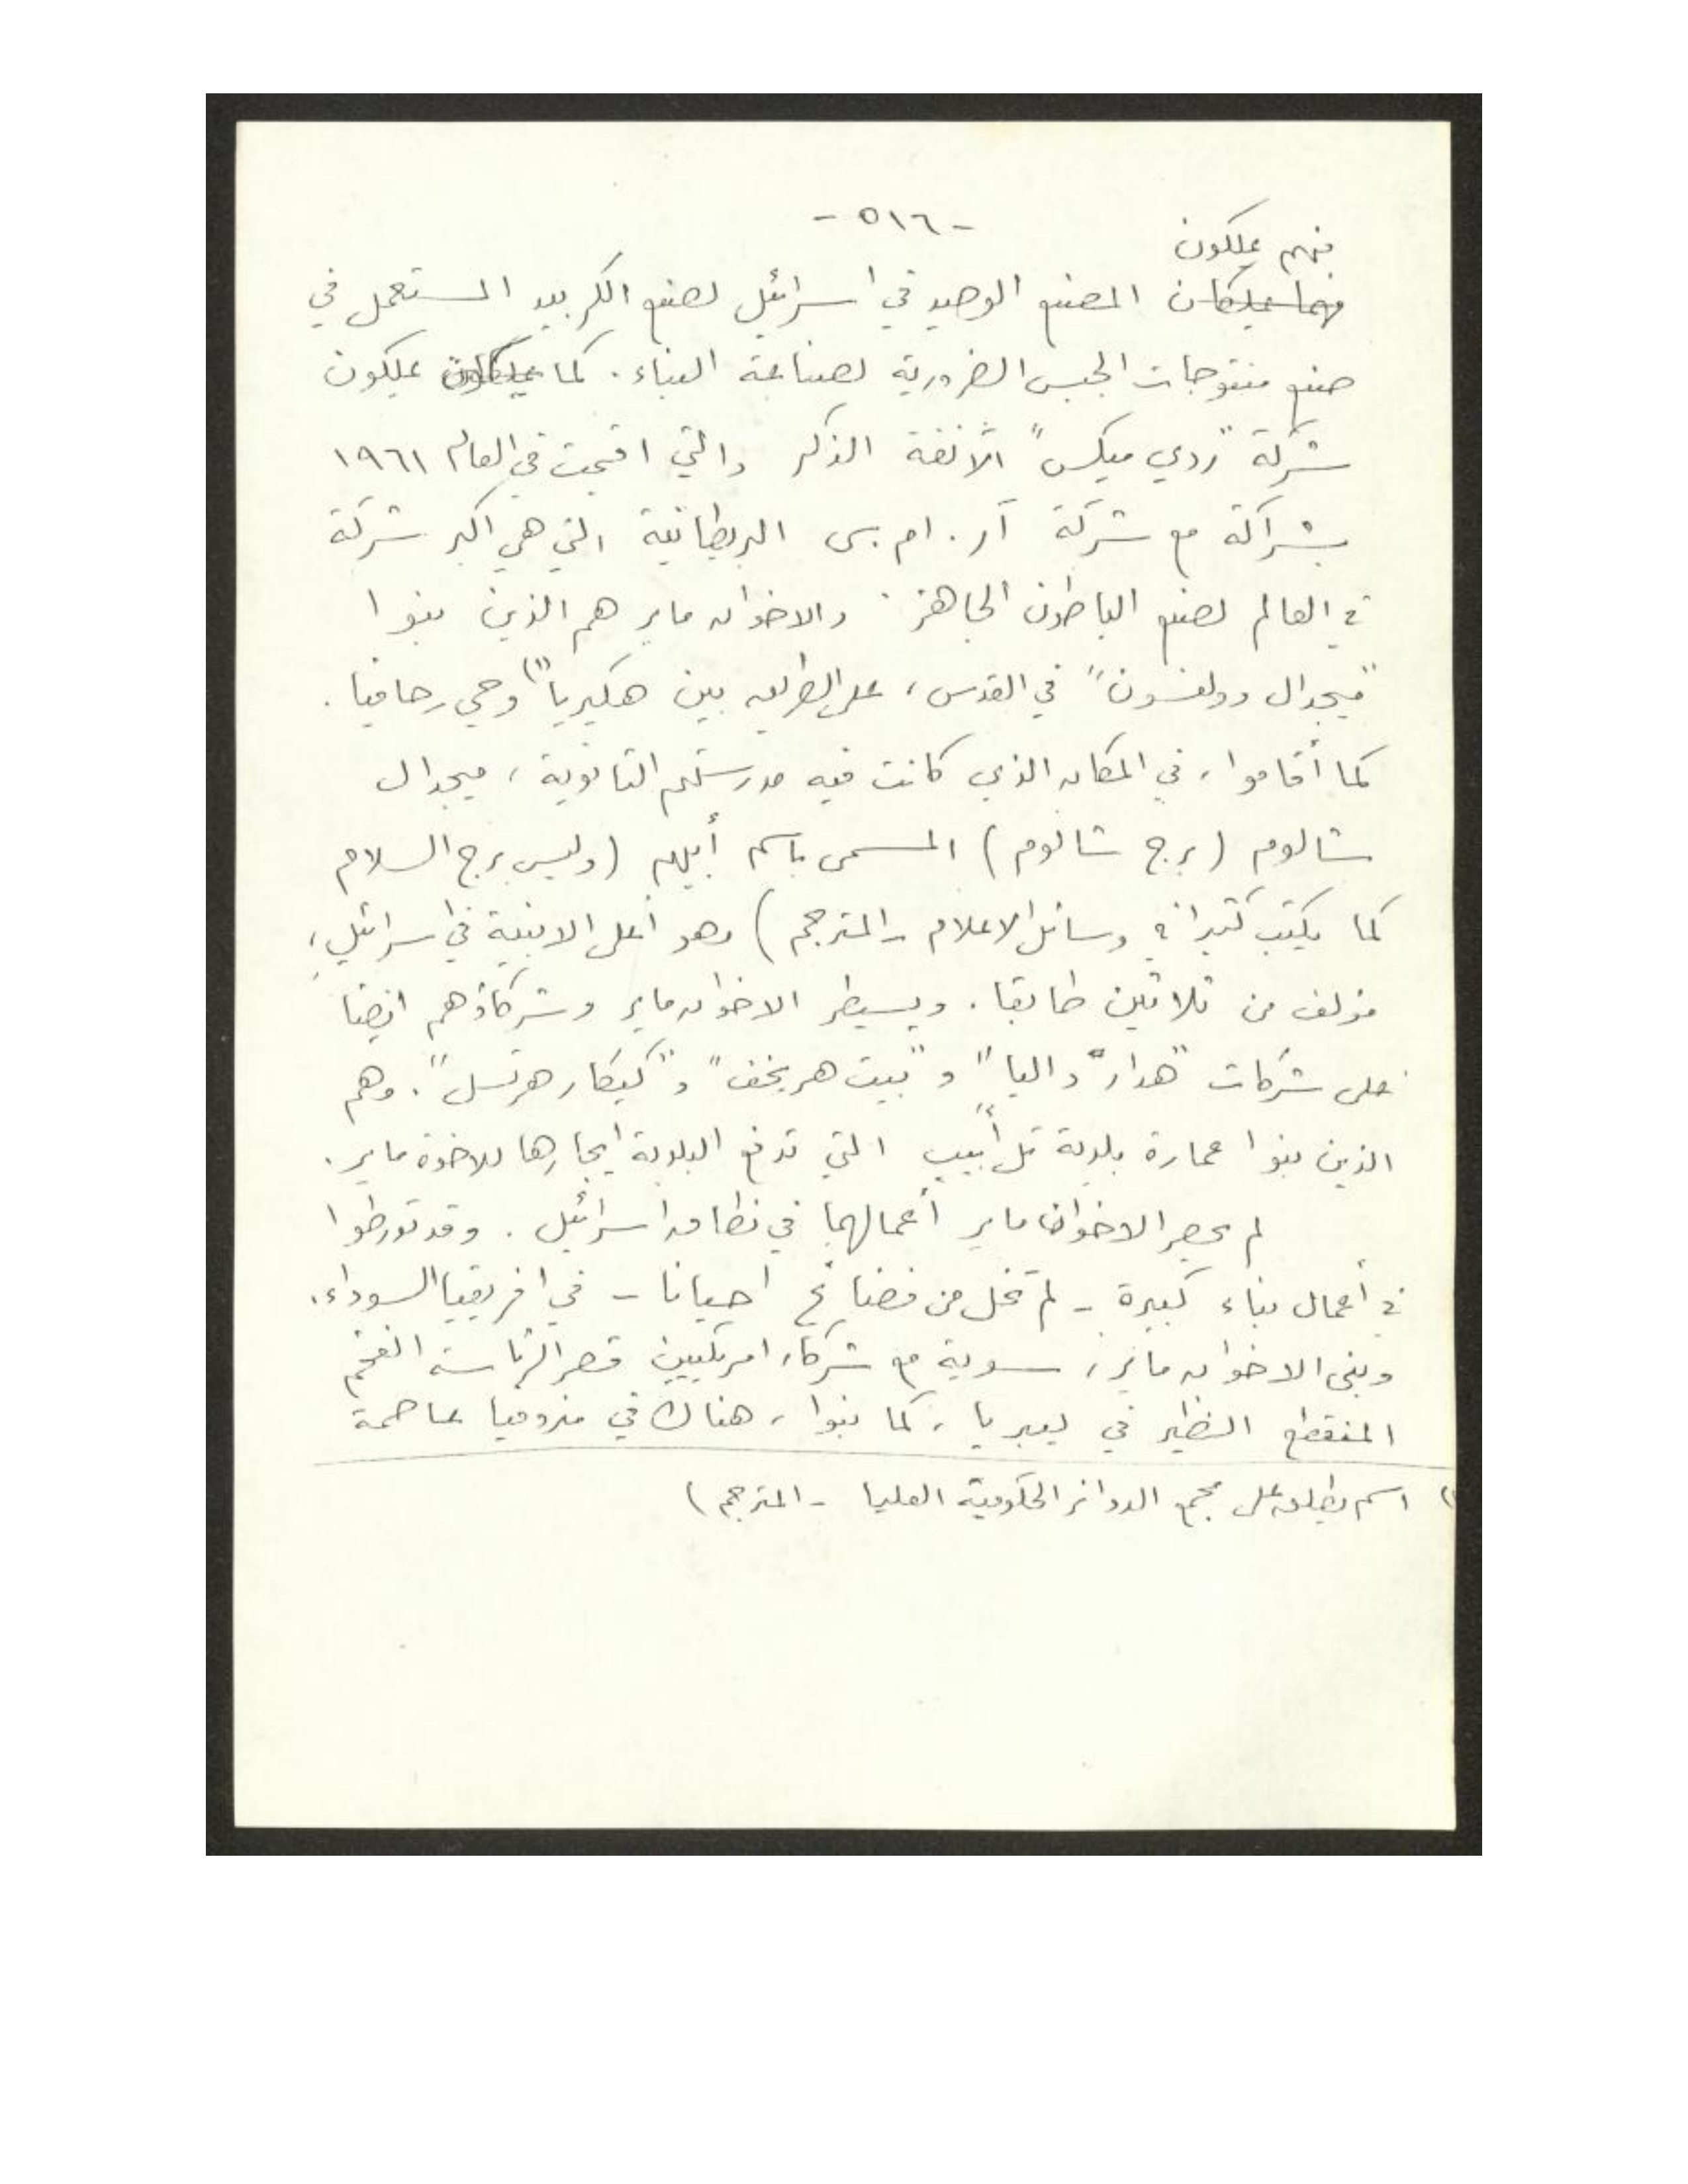 - ٥١٦ -
فهم يملكون
فهما يملكان المصنع الوحيد في اسرائيل لصنع الكربيد المستعمل في
صنع منتوجات الجبس الضرورية لصناعة البناء. كما يملكون
شركة "ردي ميكس" الآنفة الذكر والتي اقيمت في العام ١٩٦١
بشراكة مع شركة آر. ام. سي البريطانية التي هي اكبر شركة
في العالم لصنع الباطون الجاهز. والاخوان ماير هم الذين بنوا
"ميجدال وولفسون" في القدس، على الطريق بين هكيريا (١) وحي رحافيا.
كما أقاموا، في المكان الذي كانت فيه مدرستهم الثانوية، ميجدال
شالوم (برج شالوم) المسمى باسم أبيهم (وليس برج السلام
كما يكتب كثيرا في وسائل الاعلام - المترجم) وهو أعلى الابنية في اسرائيل،
مؤلف من ثلاثين طابقا. ويسيطر الاخوان ماير وشركاؤهم ايضا
على شركات "هدار" داليا" و"بيت هر" و"كيكار هرتسل". وهم
الذين بنوا عمارة بلدية تل أبيب التي تدفع البلدية ايجارها للاخوة ماير.
لم يحصر الاخوان ماير أعمالهما في نطاق اسرائيل. وقد تورطوا
في أعمال بناء كبيرة - لم تخل من فضائح احيانا - في افريقيا السوداء.
وبنى الاخوان ماير، سوية مع شركاء امريكيين قصر الرئاسة الفخم
المنقطع النظير في ليبريا، كما بنوا، هناك في منروفيا عاصمة
١) اسم يطلق على مجمع الدوائر الحكومية العليا - المترجم)